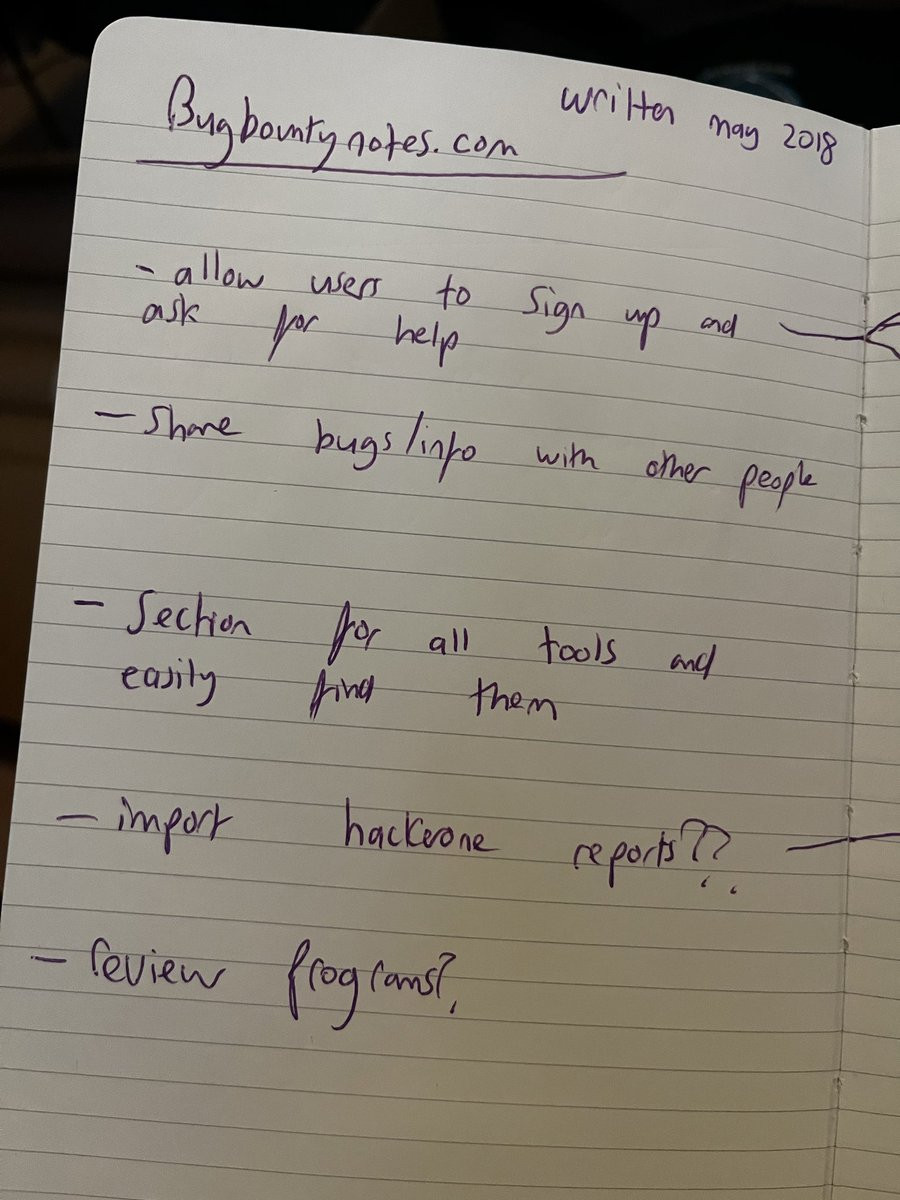 Bugbountynotes.com
written may 2018
- allow users to sign up and
ask for help
- Share bugs/info with other people
- Section for all tools and
easily find them
- import hackerone reports??
- review programs?